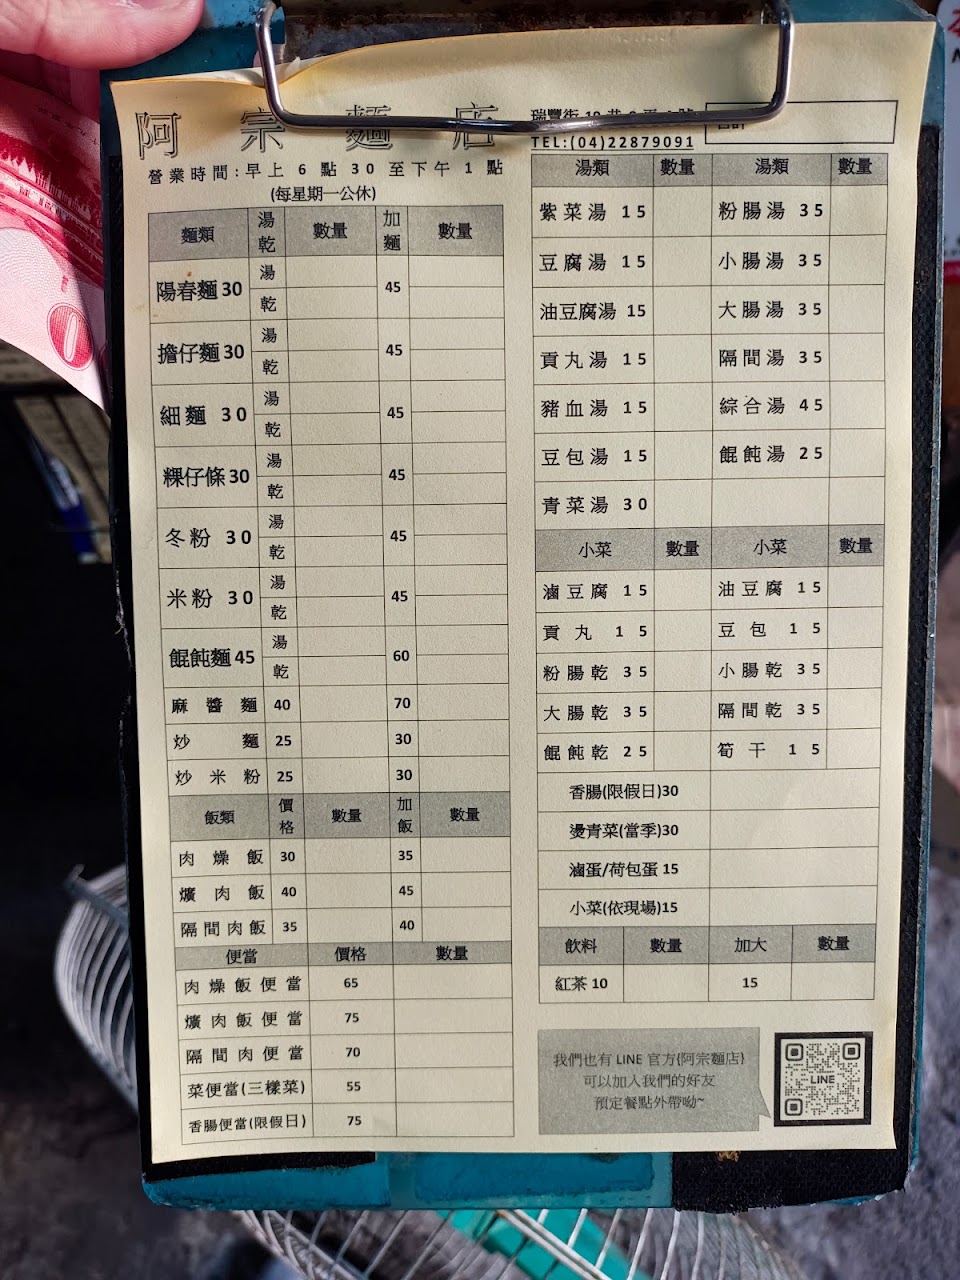 阿宗麵店
TEL:(04)22879091
營業時間:早上6點30至下午1點
(每星期一公休)
麵類 湯乾 數量 加麵 數量
陽春麵30 湯 乾 45
擔仔麵30 湯 乾 45
細麵 30 湯 乾 45
粿仔條30 湯 乾 45
冬粉 30 湯 乾 45
米粉 30 湯 乾 45
餛飩麵45 湯 乾 60
麻醬麵 40 70
炒麵 25 30
炒米粉 25 30
飯類 價格 數量 加飯 數量
肉燥飯 30 35
爌肉飯 40 45
隔間肉飯 35 40
便當 價格 數量
肉燥飯便當 65
爌肉飯便當 75
隔間肉便當 70
菜便當(三樣菜) 55
香腸便當(限假日) 75
湯類 數量 湯類 數量
紫菜湯 15 粉腸湯 35
豆腐湯 15 小腸湯 35
油豆腐湯 15 大腸湯 35
貢丸湯 15 隔間湯 35
豬血湯 15 綜合湯 45
豆包湯 15 餛飩湯 25
青菜湯 30
小菜 數量 小菜 數量
滷豆腐 15 油豆腐 15
貢丸 15 豆包 15
粉腸乾 35 小腸乾 35
大腸乾 35 隔間乾 35
餛飩乾 25 筍干 15
香腸(限假日)30
燙青菜(當季)30
滷蛋/荷包蛋 15
小菜(依現場)15
飲料 數量 加大 數量
紅茶 10 15
我們也有 LINE 官方{阿宗麵店}
可以加入我們的好友
預定餐點外帶呦~
LINE